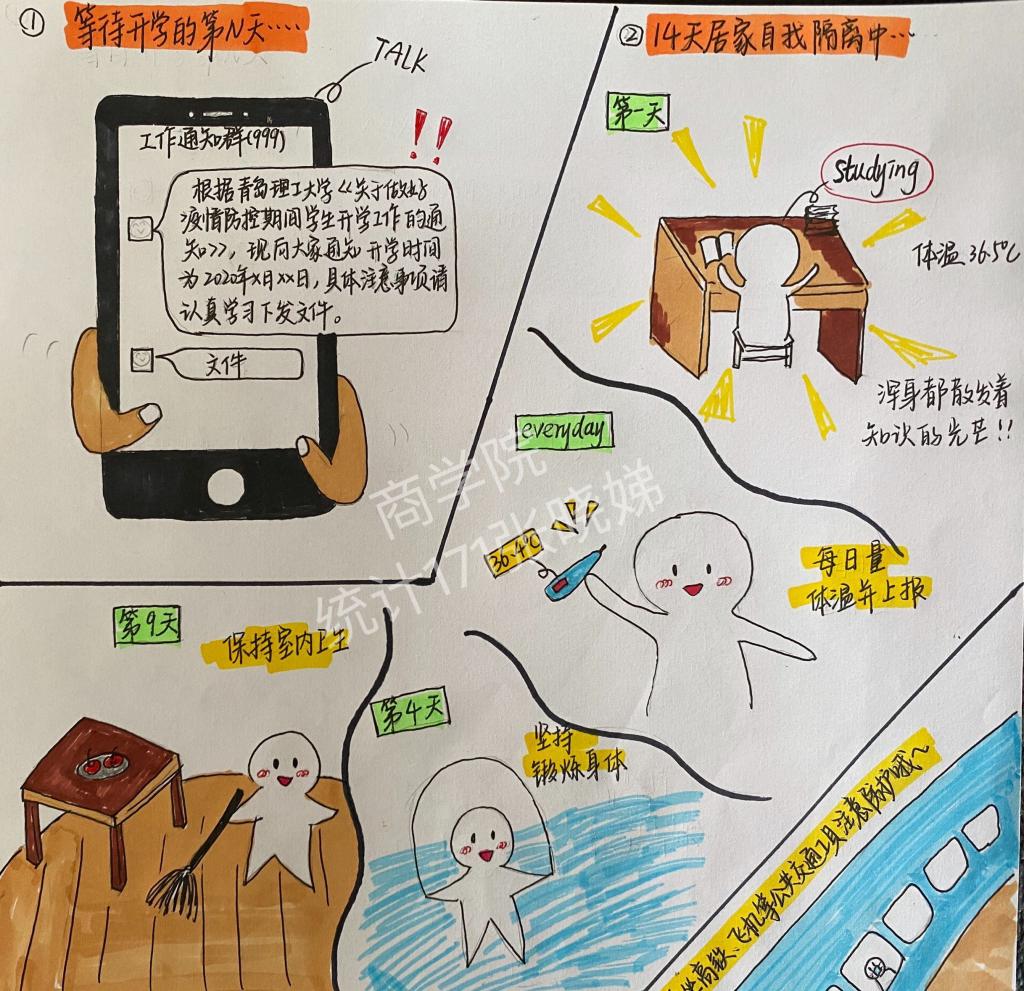 ① 等待开学的第N天……
TALK
工作通知群(999)
!!
根据青岛理工大学《关于做好
疫情防控期间学生开学工作的通
知》，现向大家通知开学时间
为2020年X月XX日，具体注意事项请
认真学习下发文件。
文件
② 14天居家自我隔离中…
第一天
studying
体温36.5℃
浑身都散发着
知识的光芒!!
everyday
36.4℃
每日量
体温并上报
第9天
保持室内卫生
第4天
坚持
锻炼身体
坐高铁、飞机等公共交通工具注意防护哦~
商学院
统计171张晓娣